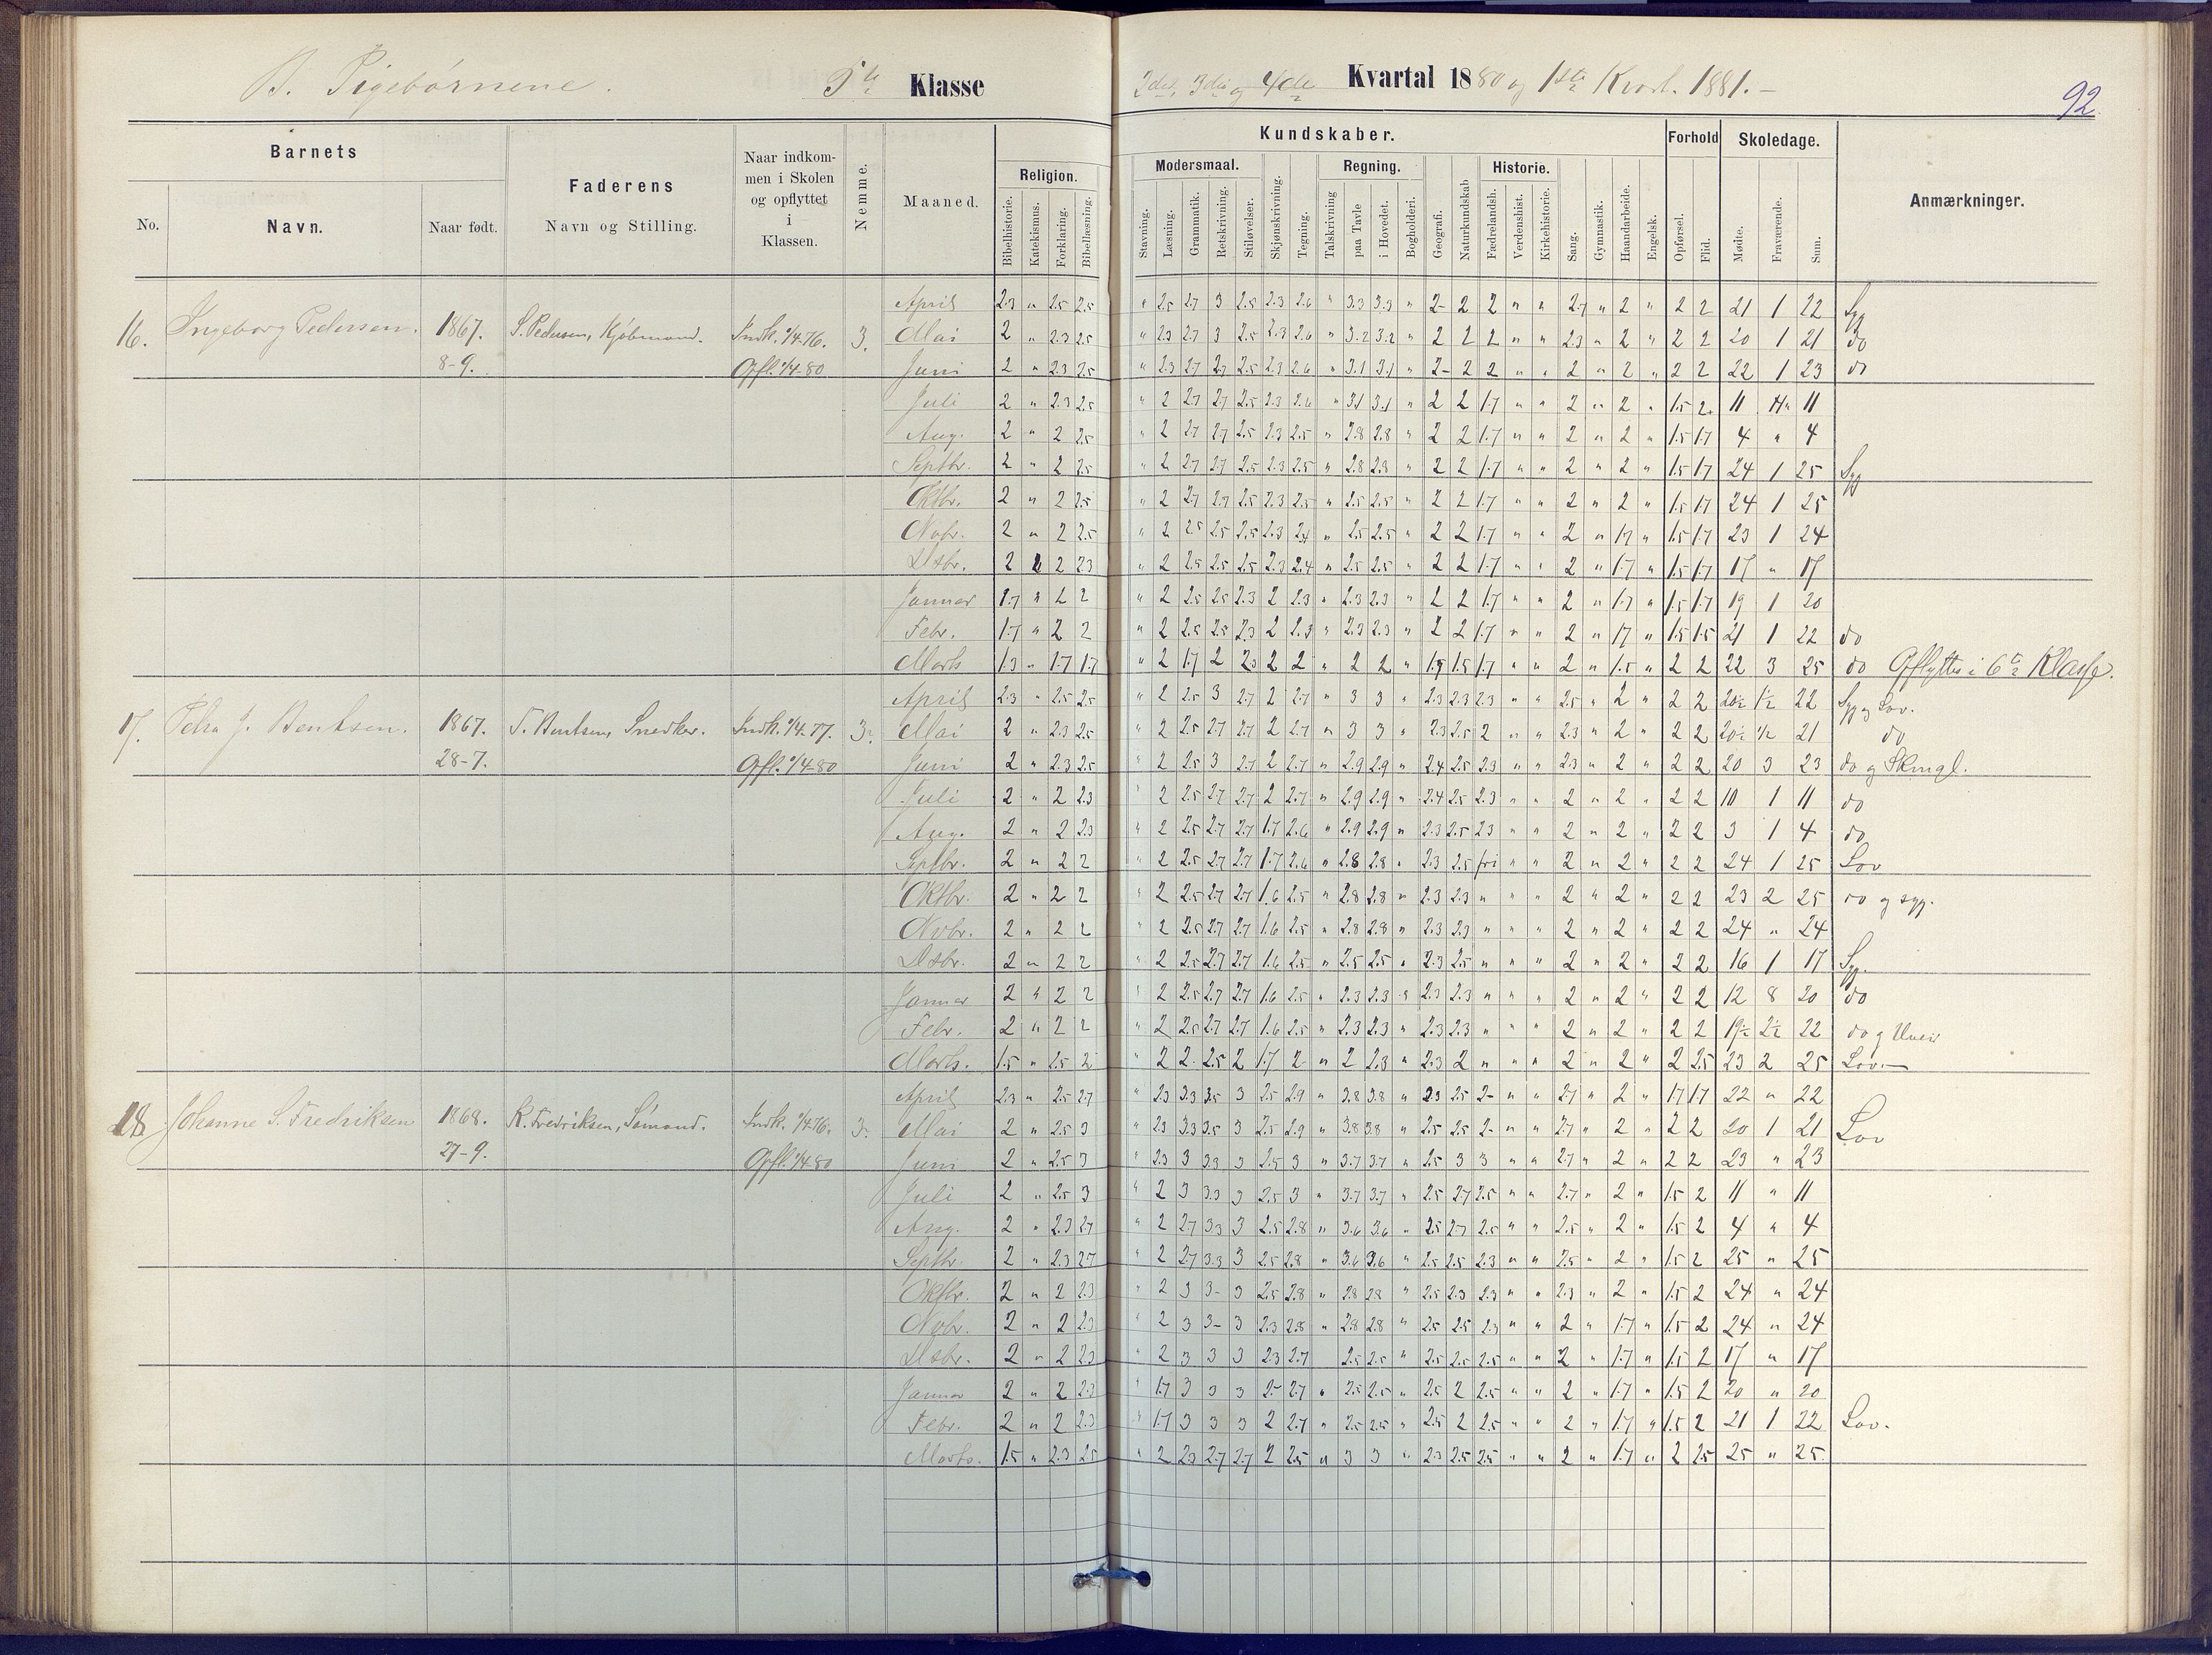 B. Pigebørnene. 5te Klasse 2det, 3die og 4de Kvartal 1880 og 1ste Kvart. 1881. –
92
Kundskaber. Forhold Skoledage.
Barnets
Faderens
Navn og Stilling.
Naar indkom-
men i Skolen
og opflyttet
i
Klassen.
Nemme.
Maaned.
Religion. Modersmaal. Regning. Historie.
Anmærkninger.
No. Navn. Naar født.
Bibelhistorie. Katekismus. Forklaring. Bibellæsning. Stavning. Læsning. Grammatik. Retskrivning. Stiløvelser. Skjønskrivning. Tegning. Talskrivning paa Tavle i Hovedet. Bogholderi. Geografi. Naturkundskab Fædrelandsh. Verdenshist. Kirkehistorie. Sang. Gymnastik. Haandarbeide. Engelsk. Opførsel. Flid. Mødte. Fraværende. Sum.
April 2.3 " 2.5 2.5 " 2.5 2.7 3 2.5 2.3 2.6 " 3.3 3.3 " 2- 2 2 " " 2.7 " 2 " 2 2 21 1 22 Syg
16. Ingeborg Pedersen. 1867. S. Pedersen, Kjøbmand. Indk. 1/4-76. 3. Mai 2 " 2.3 2.5 " 2.3 2.7 3 2.5 2.3 2.6 " 3.2 3.2 " 2 2 2 " " 2.3 " 2 " 2 2 20 1 21 do
8-9. Opfl. 1/4-80 Juni 2 " 2.3 2.5 " 2.3 2.7 2.7 2.5 2.3 2.6 " 3.1 3.1 " 2- 2 2 " " 2 " 2 " 2 2 22 1 23 do
Juli 2 " 2.3 2.5 " 2 2.7 2.7 2.5 2.3 2.6 " 3.1 3.1 " 2 2 1.7 " " 2 " 2 " 1.5 2 11 " 11
Aug. 2 " 2 2.5 " 2 2.7 2.7 2.5 2.3 2.5 " 2.8 2.8 " 2 2 1.7 " " 2 " 2 " 1.5 1.7 4 " 4
Septbr. 2 " 2 2.5 " 2 2.7 2.7 2.5 2.3 2.5 " 2.8 2.8 " 2 2 1.7 " " 2 " 2 " 1.5 1.7 24 1 25 Syg
Oktbr. 2 " 2 2.5 " 2 2.7 2.7 2.5 2.3 2.5 " 2.5 2.5 " 2 2 1.7 " " 2 " 2 " 1.5 1.7 24 1 25
Novbr. 2 " 2 2.5 " 2 2.5 2.5 2.5 2.3 2.4 " 2.5 2.5 " 2 2 1.7 " " 2 " 1.7 " 1.5 1.7 23 1 24
Dsbr. 2 2 2.3 " 2 2.5 2.5 2.5 2.3 2.4 " 2.5 2.5 " 2 2 1.7 " " 2 " 1.7 " 1.5 1.7 17 " 17
Januar 1.7 " 2 2 " 2 2.5 2.5 2.3 2 2.3 " 2.3 2.3 " 2 2 1.7 " " 2 " 1.7 " 1.5 1.7 19 1 20
Febr. 1.7 " 2 2 " 2 2.5 2.5 2.3 2 2.3 " 2.3 2.3 " 2 2 1.7 " " 2 " 1.7 " 1.5 1.5 21 1 22 do
Marts 1.3 " 1.7 1.7 " 2 1.7 2 2.3 2 2 " 2 2 " 1.5 1.7 " " 2 " 1.5 " 2 2 22 3 25 do Opflyttes i 6te Klasse.
April 2.3 " 2.5 2.5 " 2 2.5 3 2.7 2 2.7 " 3 3 " 2.3 2.3 2.3 " " 2.5 " 2 " 2 2 20½ 1½ 22 Syg og Lov.
17. Petra J. Bentsen. 1867. T. Bentsen, Snedker. Indk. 1/4-77. 3. Mai 2 " 2.3 2.5 " 2 2.5 2.7 2.7 2 2.7 " 3 3 " 2.3 2.5 2 " " 2.3 " 2 " 2 2 20½ ½ 21 do
28-7. Opfl. 1/4-80 Juni 2 " 2.3 2.5 " 2 2.5 3 2.7 2 2.7 " 2.9 2.9 " 2.4 2.5 2.3 " " 2.3 " 2 " 2 2 20 3 23 do og
Juli 2 " 2 2.3 " 2 2.5 2.7 2.7 2 2.7 " 2.9 2.9 " 2.4 2.5 2.3 " " 2 " 2 " 2 2 10 1 11 do
Aug. 2 " 2 2.3 " 2 2.5 2.7 2.7 1.7 2.6 " 2.9 2.9 " 2.3 2.5 2.3 " " 2 " 2 " 2 2 3 1 4 do
Septbr. 2 " 2 2 " 2 2.5 2.7 2.7 1.7 2.6 " 2.8 2.8 " 2.3 2.5 fri " " 2 " 2 " 2 2 24 1 25 Lov
Oktbr. 2 " 2 2 " 2 2.5 2.7 2.7 1.6 2.5 " 2.8 2.8 " 2.3 2.3 " " " 2 " 2 " 2 2 23 2 25 do og syg.
Novbr. 2 " 2 2 " 2 2.5 2.7 2.7 1.6 2.5 " 2.8 2.8 " 2.3 2.3 " " " 2 " 2 " 2 2 24 " 24
Dsbr. 2 " 2 2 " 2 2.5 2.7 2.7 1.6 2.5 " 2.5 2.5 " 2.3 2.5 " " " 2 " 2 " 2 2 16 1 17 Syg.
Januar 2 " 2 2 " 2 2.5 2.7 2.7 1.6 2.5 " 2.3 2.3 " 2.3 2.3 " " " 2 " 2 " 2 2 12 8 20 do
Febr. 2 " 2 2 " 2 2.5 2.7 2.7 1.6 2.5 " 2.3 2.3 " 2.3 2.3 " " " 2 " 2 " 2 2 19½ 2½ 22 do og Uveir
Marts. 1.5 " 2.5 2 " 2 2 2.5 2 1.7 2 " 2 2.3 " 2.3 2 " " " 2 " 2 " 2 2.5 23 2 25 Lov. —
April 2.3 " 2.5 2.7 " 2.3 3.3 3.5 3 2.5 2.9 " 3.8 3.8 " 2.3 2.5 2- " " 2.7 " 2 " 1.7 1.7 22 " 22
18 Johanne S. Fredriksen 1868. K. Fredriksen, Sømand. Indk. 1/4-76. 3. Mai 2 " 2.5 3 " 2.3 3.3 3.5 3 2.5 2.9 " 3.8 3.8 " 2.5 2.5 2- " " 2.7 " 2 " 2 2 20 1 21 Lov
27-9. Opfl. 1/4-80 Juni 2 " 2.5 3 " 2.3 3 3.3 3 2.5 3 " 3.7 3.7 " 2.5 3 3 " " 2.7 " 2 " 2 2 23 " 23
Juli 2 " 2.5 3 " 2 3 3.3 3 2.5 3 " 3.7 3.7 " 2.5 2.7 2.5 " " 2.7 " 2 " 1.5 2 11 " 11
Aug. 2 " 2.3 2.7 " 2 2.7 3.3 3 2.5 2.8 " 3.6 3.6 " 2.5 2.7 2.5 " " 2.5 " 2 " 1.5 2 4 " 4
Septbr. 2 " 2.3 2.7 " 2 2.7 3.3 3 2.5 2.8 " 3.6 3.6 " 2.5 2.5 2.3 " " 2.5 " 2 " 1.5 2 25 " 25
Oktbr. 2 " 2 2.3 " 2 3 3- 3 2.5 2.8 " 2.8 2.8 " 2.5 2.3 2.3 " " 2.3 " 2 " 1.5 2 24 " 24
Novbr. 2 " 2 2.3 " 2 3 3- 3 2.3 2.8 " 2.8 2.8 " 2.5 2.5 2.3 " " 2 " 1.7 " 1.5 2 24 " 24
Dsbr. 2 " 2 2.3 " 2 3 3 3 2.3 2.7 2.5 2.5 " 2.5 2.5 2.5 " " 2 " 1.7 " 1.5 2 17 " 17
Januar 2 " 2 2.3 " 1.7 3 3 3 2- 2.7 " 2.5 2.5 " 2.5 2 2.5 " " 2 " 1.7 " 1.5 2 20 " 20
Febr. 2 " 2 2.3 " 1.7 3 3 3 2 2.7 " 2.5 2.5 " 2.5 2 2.5 " " 2 " 1.7 " 1.5 2 21 1 22 Lov.
Marts. 1.5 " 2.3 2.5 " 2 2.3 2.7 2.7 2 2.5 " 3 3 " 2.3 2.5 2.5 " " 2 " 1.7 " 2 2.5 25 " 25